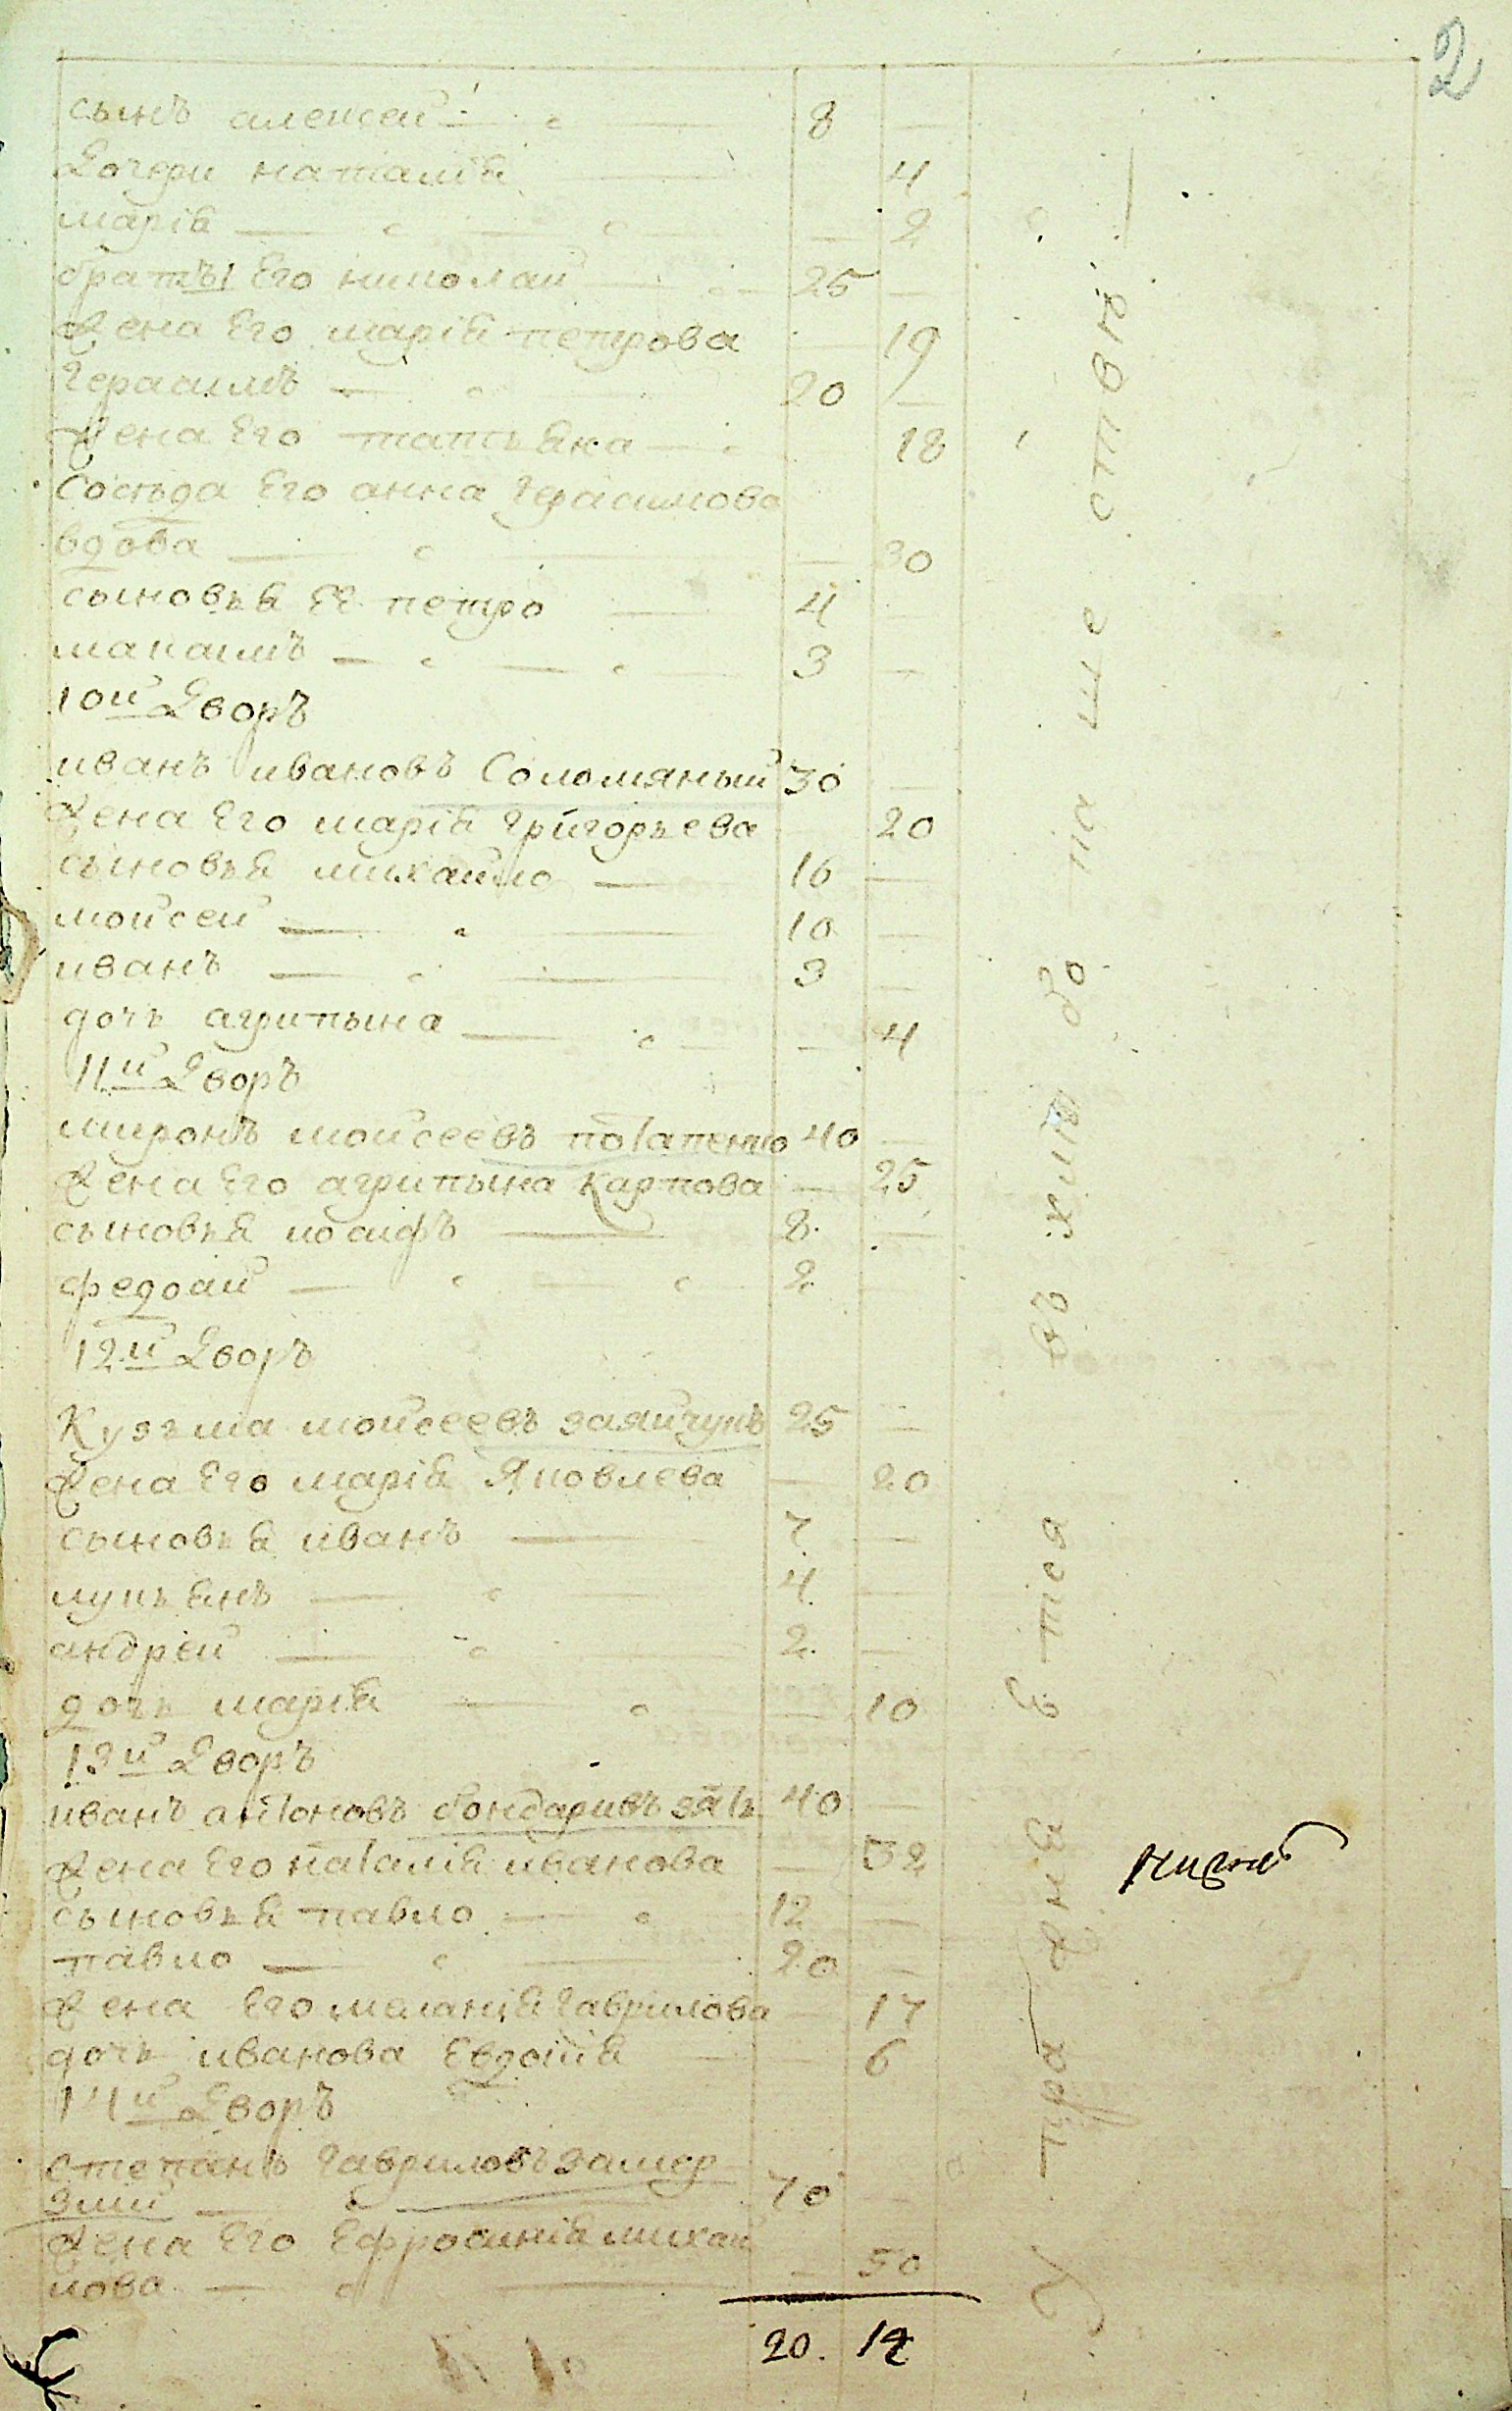 2
сынъ алексей — 8 —
Дочери наталія — 4
марія — — 2
братъя Его николай — 25 —
Жена Его марія петрова — 19
Герасимъ — 20 —
Жена Его татьяна — 18
Состьда Его анна Герасимова
вдова — — 30
сыновья Ее петро — 4 —
макаимъ — — 3 —
10й Дворъ
иванъ ивановъ Соломяный 30 —
Жена Его марія григорьева 20
сыновья михайло — 16 —
мойсей — — 10 —
иванъ — — 3 —
дочь агрипына — — 4
11й Дворъ
миронъ мойсеевъ потапенко 40 —
Жена Его агрипына Карпова — 25
сыновья иосифъ — 8 —
федосий — — 2 —
12й Дворъ
Кузъма мойсеевъ заяичукъ 25 —
Жена Его марія Яковлева — 20
сыновья иванъ — 7 —
лукъянъ — — 4 —
андрей — — 2 —
дочь марія — — 10
13й Дворъ
иванъ антоновъ бондаривъ зять 40 —
Жена Его наталія иванова — 32
сыновья павло — 12 —
павло — — 20 —
Жена Его меланія Гаврилова 17
дочь иванова Евдокія — — 6
14й Дворъ
степанъ Гавриловъ замер
злий — — 70 —
Жена Его Ефросинія михай
лова — — 50
20. 12